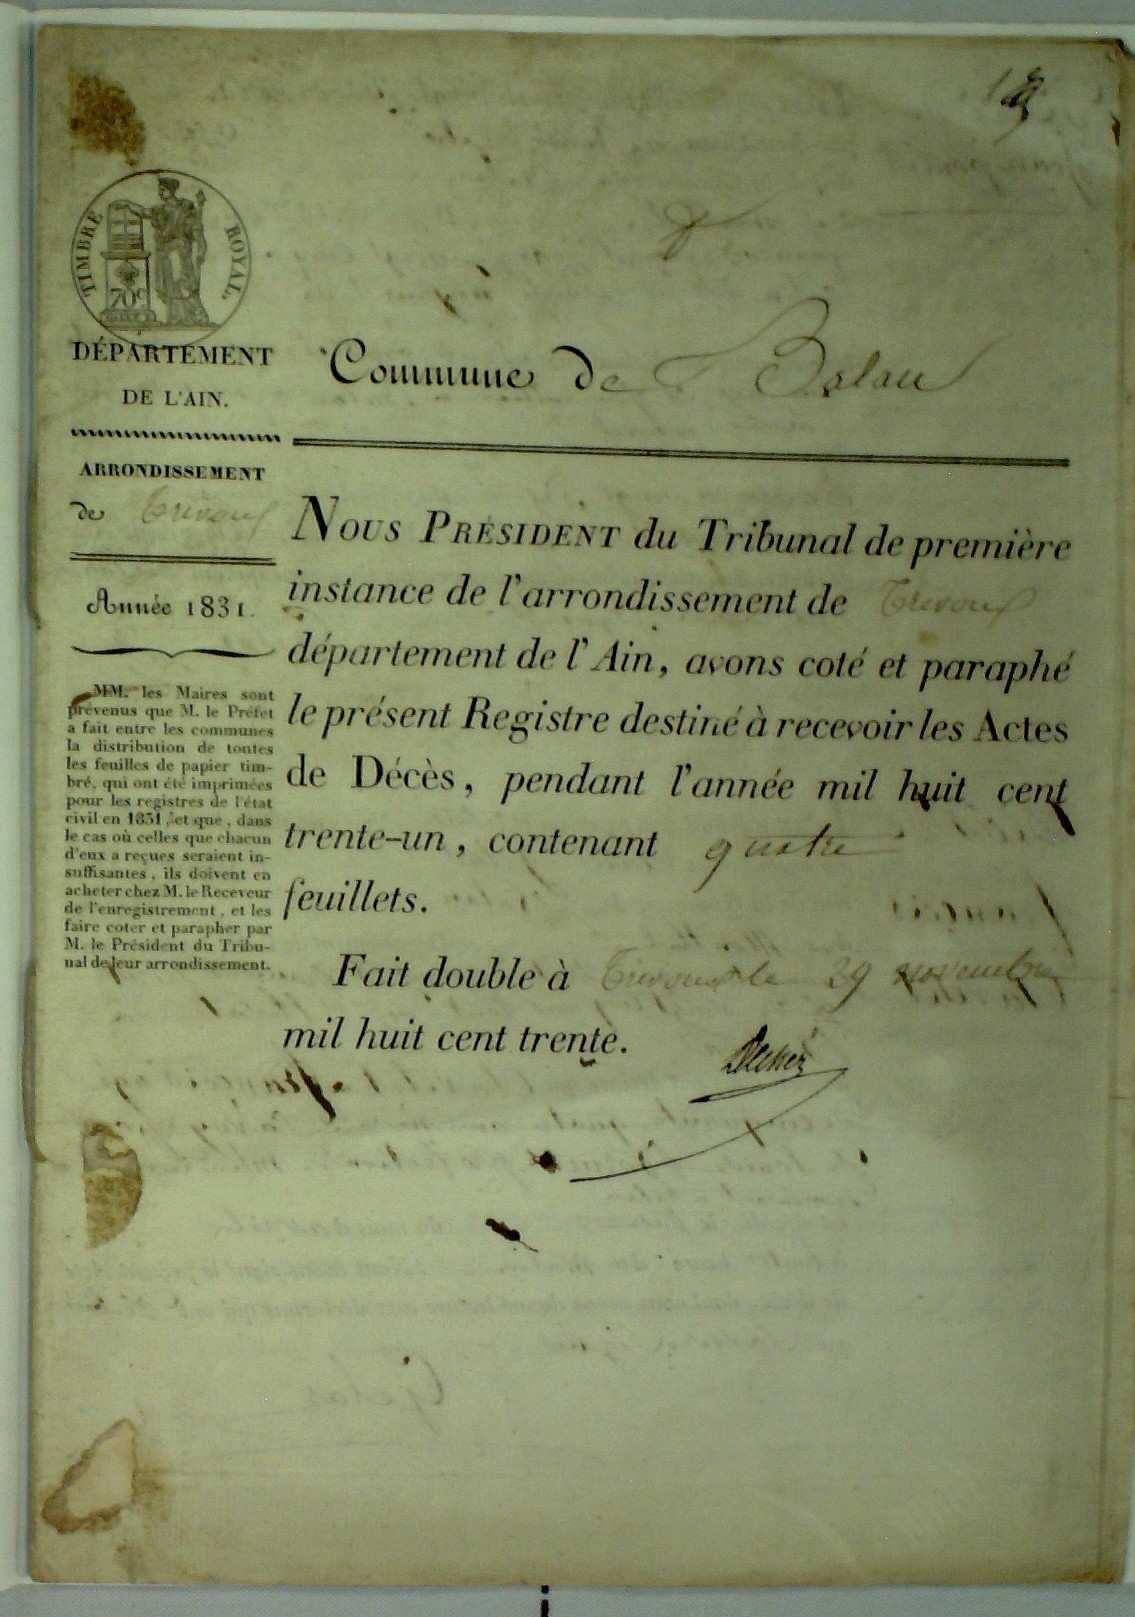 TIMBRE ROYAL.
70c
DÉPARTEMENT
DE L'AIN.
ARRONDISSEMENT
de Trévoux
Année 1831.
MM. les Maires sont
prévenus que M. le Préfet
a fait entre les communes
la distribution de toutes
les feuilles de papier tim-
bré, qui ont été imprimées
pour les registres de l'état
civil en 1831, et que, dans
le cas où celles que chacun
d'eux a reçues seraient in-
suffisantes, ils doivent en
acheter chez M. le Receveur
de l'enregistrement, et les
faire coter et parapher par
M. le Président du Tribu-
nal de leur arrondissement.
Commune de Balan
NOUS PRÉSIDENT du Tribunal de première
instance de l'arrondissement de Trevoux
département de l'Ain, avons coté et paraphé
le présent Registre destiné à recevoir les Actes
de Décès, pendant l'année mil huit cent
trente-un, contenant quatre
feuillets.
Fait double à Trevoux le 29 novembre
mil huit cent trente.